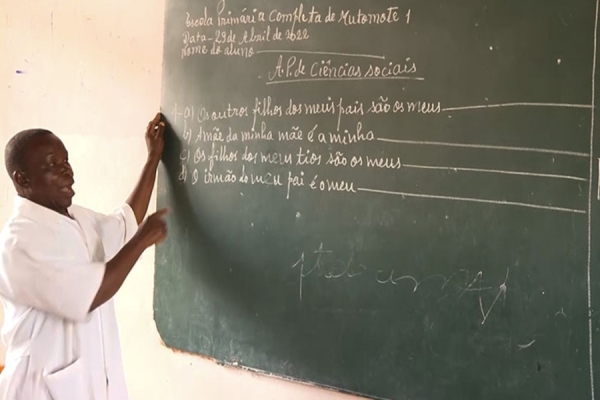 Escola Primária Completa de Mutomote 1
Data - 29 de Abril de 2022
Nome do aluno
A.P. de Ciências sociais
1- a) Os outros filhos dos meus pais são os meus
b) A mãe da minha mãe é a minha
c) Os filhos dos meus tios são os meus
d) O irmão do meu pai é o meu